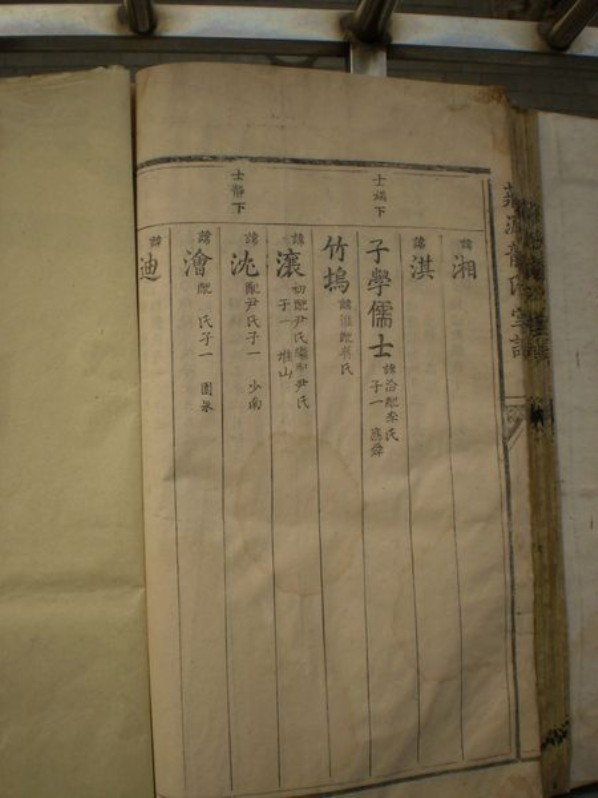 龍氏宗譜
諱湘
諱淇
士瑞下
子學儒士 諱治配李氏
子一
竹塢 諱淮配蔣氏
諱瀼 初配尹氏繼配尹氏
子一 堆山
士靜下
諱沈 配尹氏子一 少南
諱澮 配 氏子一 園泉
諱迪